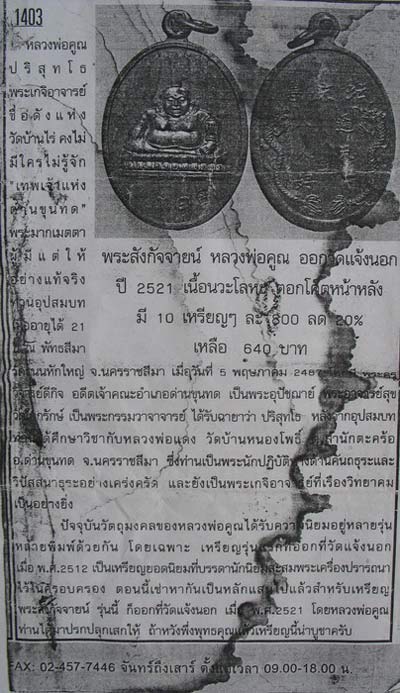 1403
หลวงพ่อคูณ
ปริสุทโธ
พระเกจิอาจารย์
ชื่อดังแห่ง
วัดบ้านไร่ คงไม่
มีใครไม่รู้จัก
"เทพเจ้าแห่ง
ด่านขุนทด"
พระมากเมตตา
ผู้มีแต่ให้
อย่างแท้จริง
ท่านอุปสมบท
เมื่ออายุได้ 21
พัทธสีมา
พระสังกัจจายน์ หลวงพ่อคูณ ออกวัดแจ้งนอก
ปี 2521 เนื้อนวะโลหะ ตอกโค๊ตหน้าหลัง
มี 10 เหรียญๆ ละ 800 ลด 20%
เหลือ 640 บาท
วัดถนนหักใหญ่ จ.นครราชสีมา เมื่อวันที่ 5 พฤษภาคม
อดีตเจ้าคณะอำเภอด่านขุนทด เป็นพระอุปัชฌาย์ พระอาจารย์สุข
เป็นพระกรรมวาจาจารย์ ได้รับฉายาว่า ปริสุทโธ หลังจากอุปสมบท
ศึกษาวิชากับหลวงพ่อแดง วัดบ้านหนองโพธิ์ สำนักตะคร้อ
อ.ด่านขุนทด จ.นครราชสีมา ซึ่งท่านเป็นพระนักปฏิบัติทางด้านคันถธุระและ
วิปัสสนาธุระอย่างเคร่งครัด และยังเป็นพระเกจิอาจารย์ที่เรืองวิทยาคม
เป็นอย่างยิ่ง
ปัจจุบันวัตถุมงคลของหลวงพ่อคูณได้รับความนิยมอยู่หลายรุ่น
หลายพิมพ์ด้วยกัน โดยเฉพาะ เหรียญรุ่นแรกที่ออกที่วัดแจ้งนอก
เมื่อ พ.ศ.2512 เป็นเหรียญยอดนิยมที่บรรดานักนิยมสะสมพระเครื่องปรารถนา
ไว้ในครอบครอง ตอนนี้เช่าหากันเป็นหลักแสนไปแล้วสำหรับเหรียญ
พระสังกัจจายน์ รุ่นนี้ ก็ออกที่วัดแจ้งนอก เมื่อ พ.ศ.2521 โดยหลวงพ่อคูณ
ท่านได้มาปรกปลุกเสกให้ ถ้าหวังพึ่งพุทธคุณแล้วเหรียญนี้น่าบูชาครับ
FAX: 02-457-7446 จันทร์ถึงเสาร์ ตั้งแต่เวลา 09.00-18.00 น.